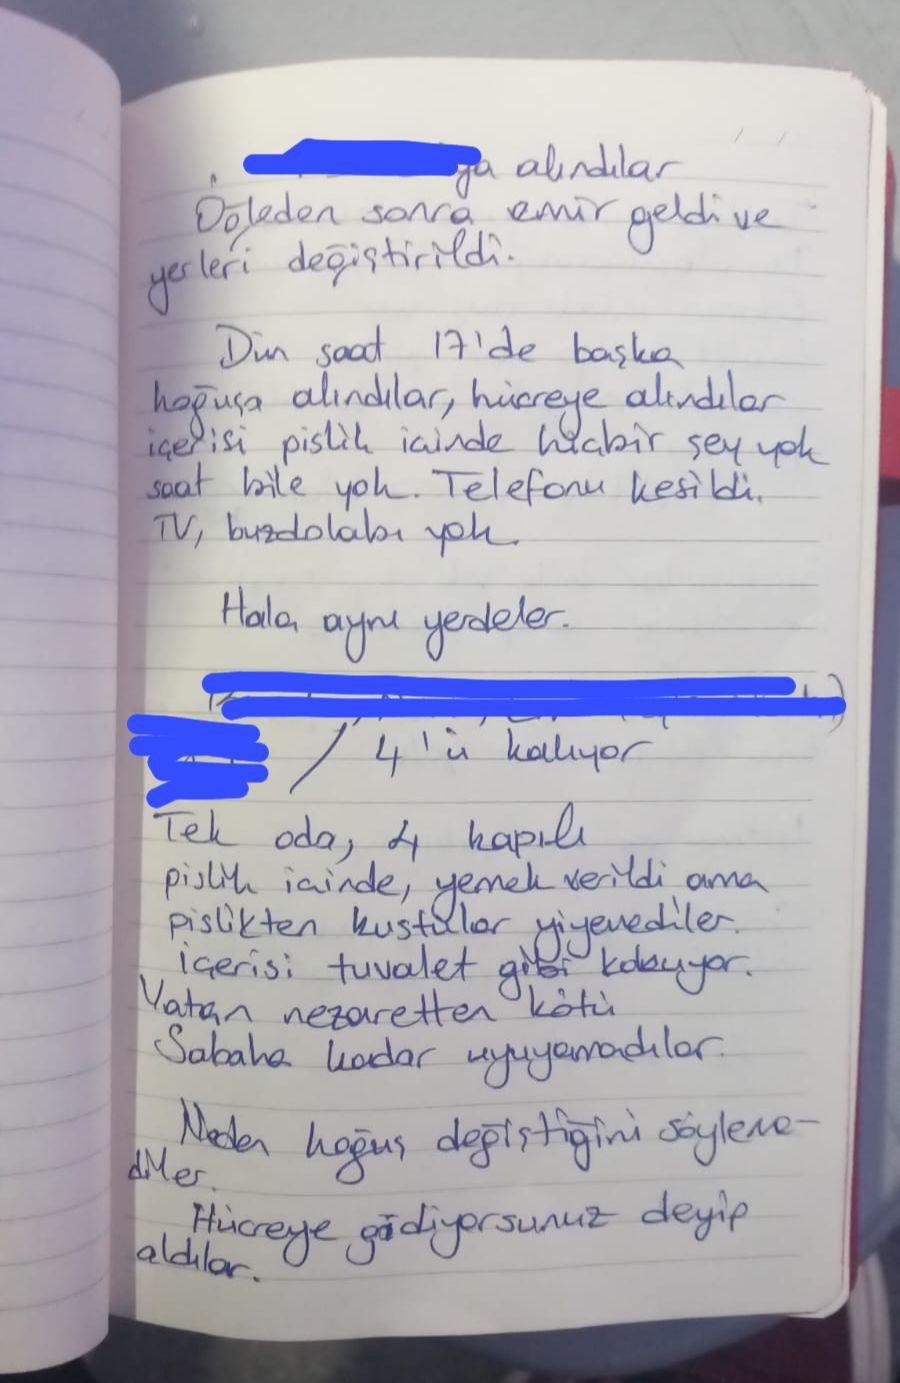 ya alındılar
Öğleden sonra emir geldi ve
yerleri değiştirildi.
Dün saat 17'de başka
koğuşa alındılar, hücreye alındılar
içerisi pislik içinde hiçbir şey yok
saat bile yok. Telefonu kesildi.
TV, buzdolabı yok.
Hala aynı yerdeler.
4'ü kalıyor
Tek oda, 4 kapılı
pislik içinde, yemek verildi ama
pislikten kustular yiyemediler.
içerisi tuvalet gibi kokuyor.
Vatan nezaretten kötü
Sabaha kadar uyuyamadılar.
Neden koğuş değiştiğini söyleme-
diler.
Hücreye gidiyorsunuz deyip
aldılar.